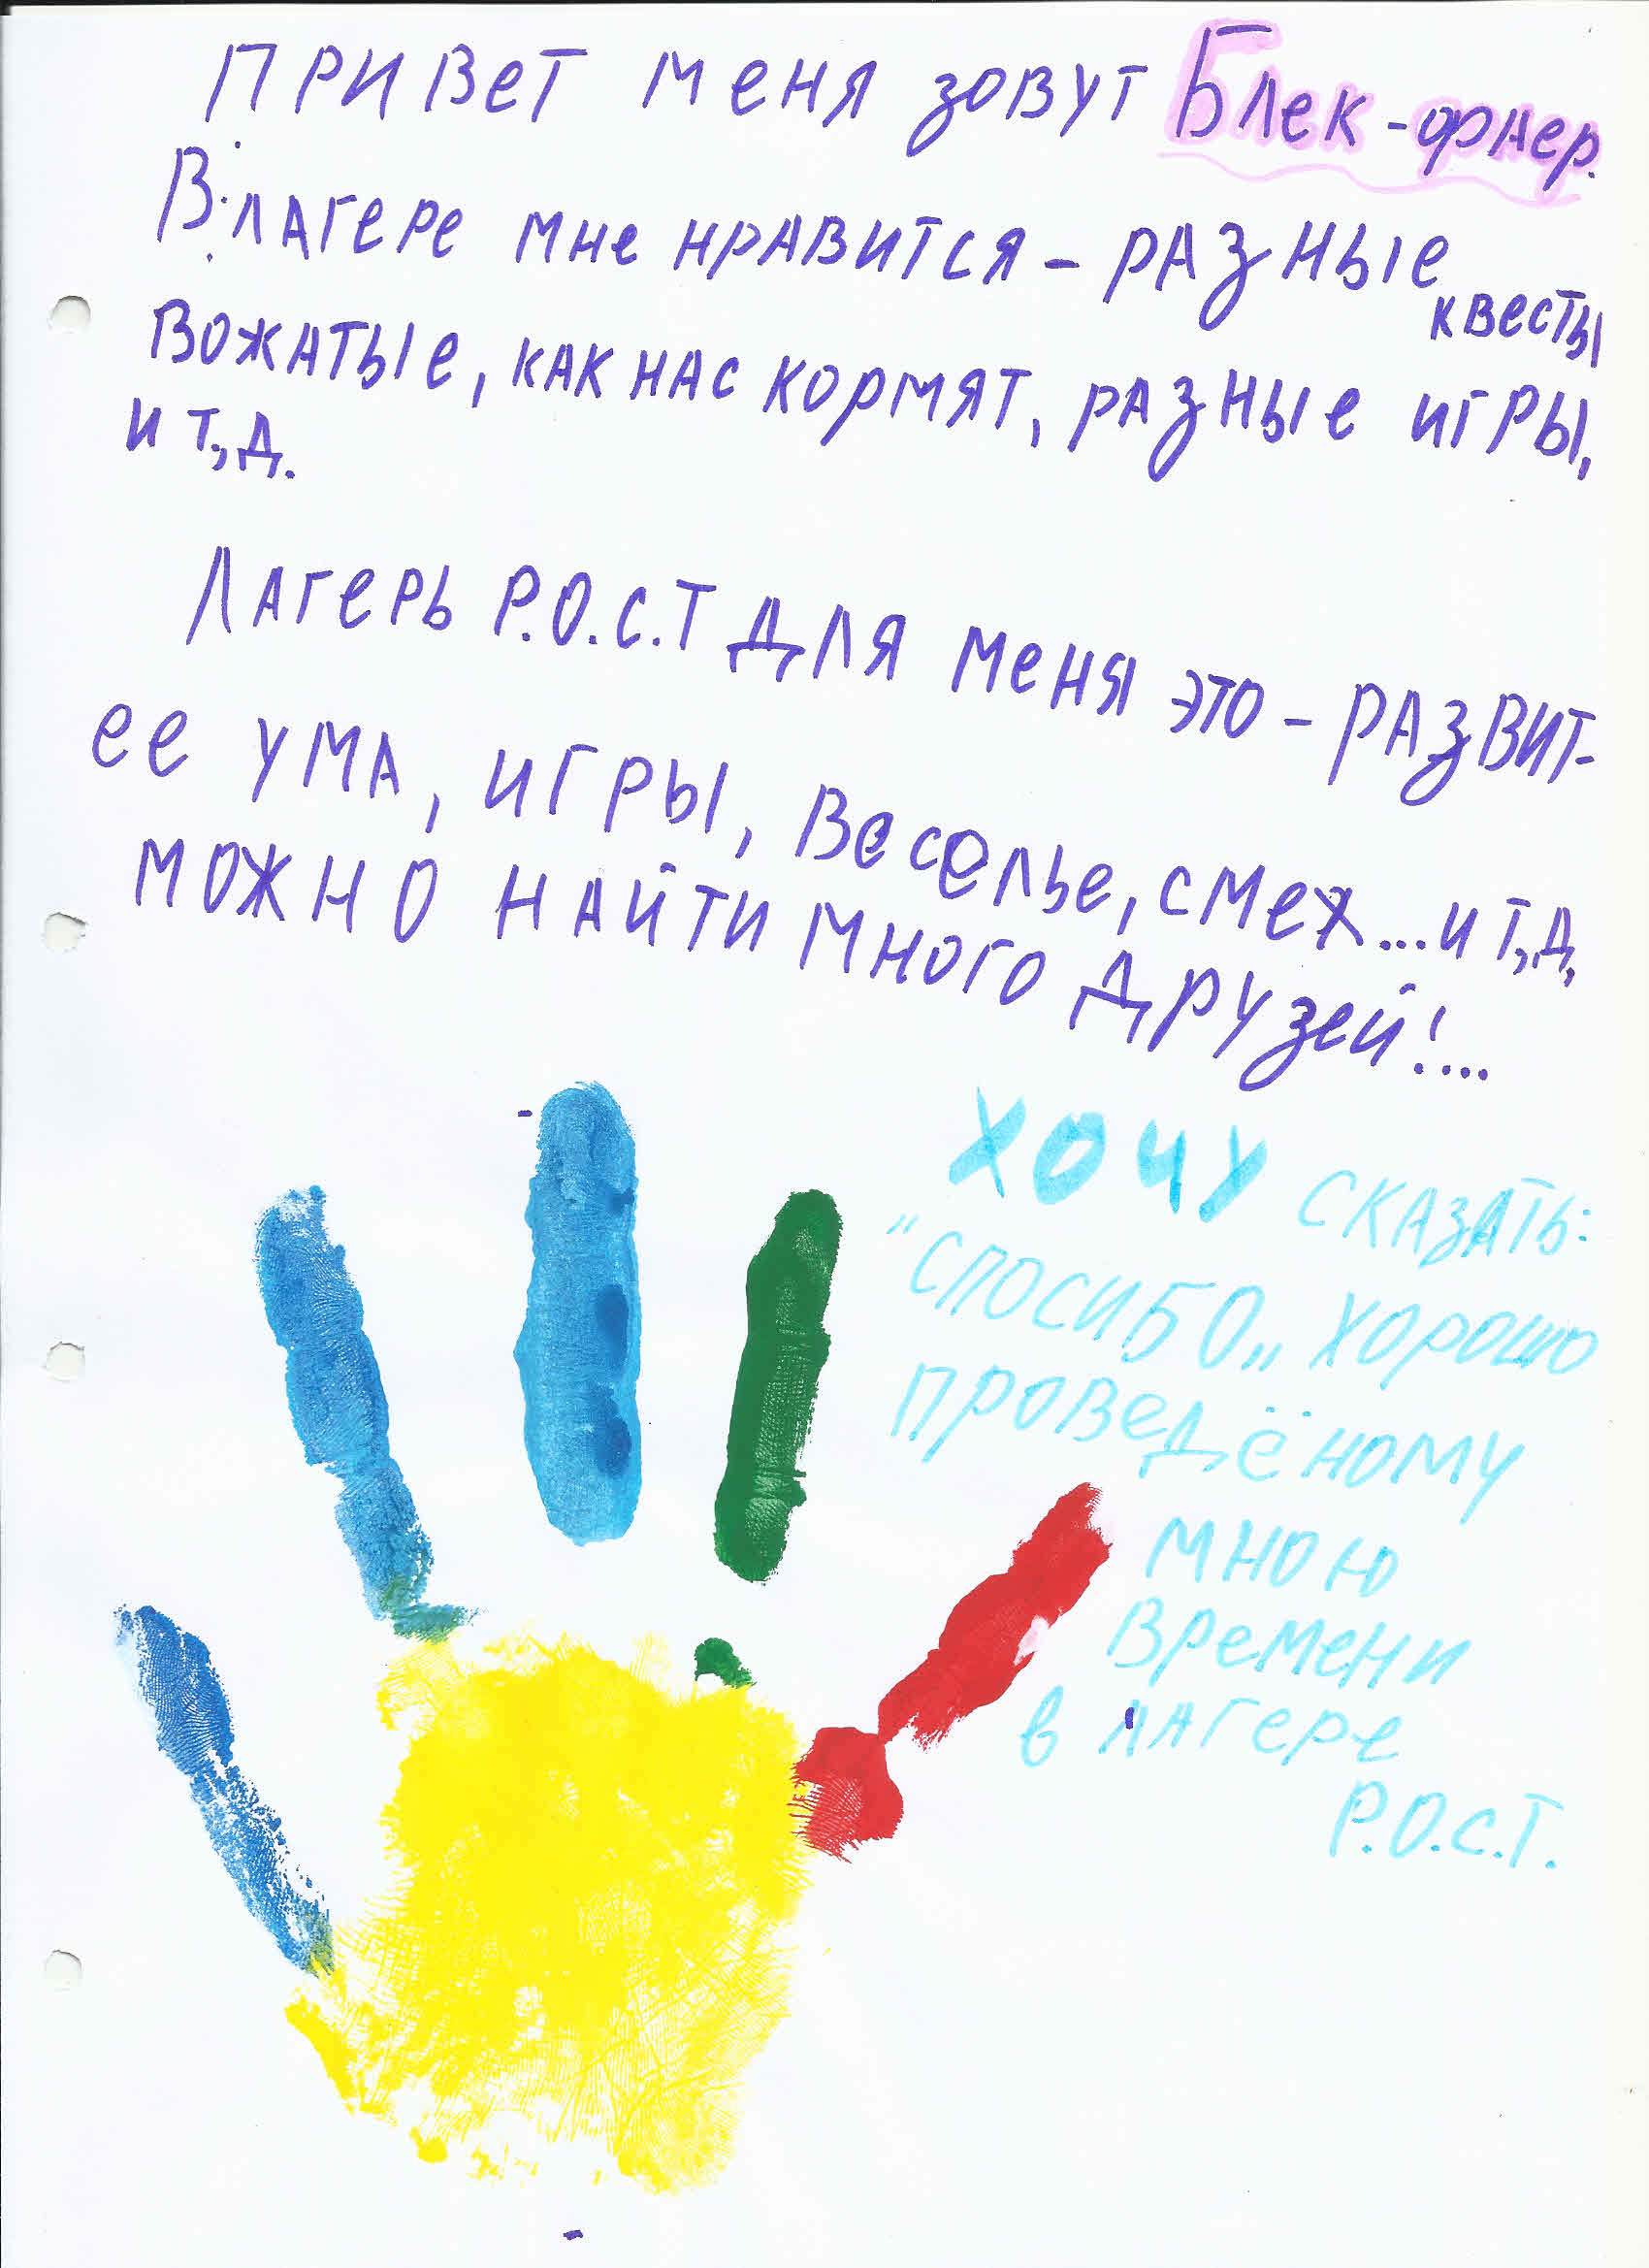 Привет меня зовут Блек-фаер.
В лагере мне нравится - разные
квесты
вожатые, как нас кормят, разные игры,
и т,д.
Лагерь Р.О.С.Т для меня это - развит-
ее ума, игры, веселье, смех...и т,д,
можно найти много друзей!...
Хочу сказать:
"спосибо„ хорошо
проведёному
мною
времени
в лагере
Р.О.С.Т.